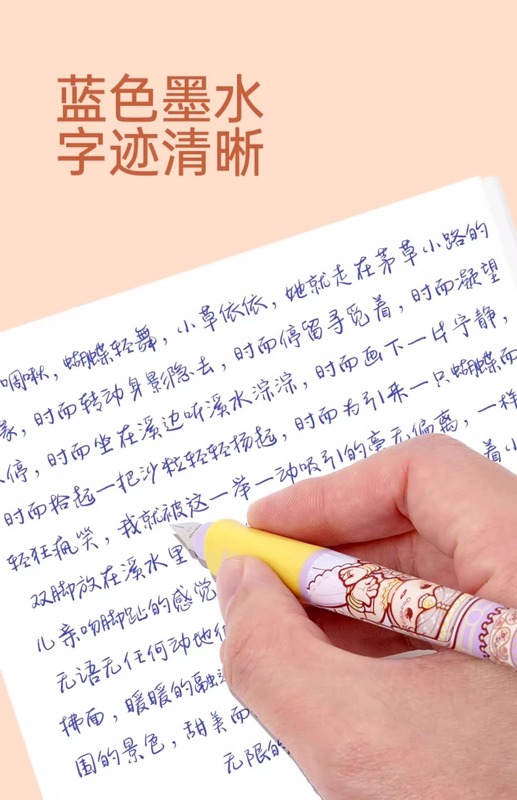 蓝色墨水
字迹清晰
啁啾，蝴蝶轻舞，小草依依，她就走在茅草小路的
时而转动身影隐去，时而停留寻觅着，时而凝望
停，时而坐在溪边听溪水淙淙，时而画下一片宁静，
时而拾起一把沙粒轻轻扬起，时而为引来一只蝴蝶而
轻狂疯笑，我就被这一举一动吸引的毫无偏离，一样
双脚放在溪水里 着小
儿亲吻脚趾的感觉
无语无任何动地
拂面，暖暖的融
围的景色，甜美而
无限的